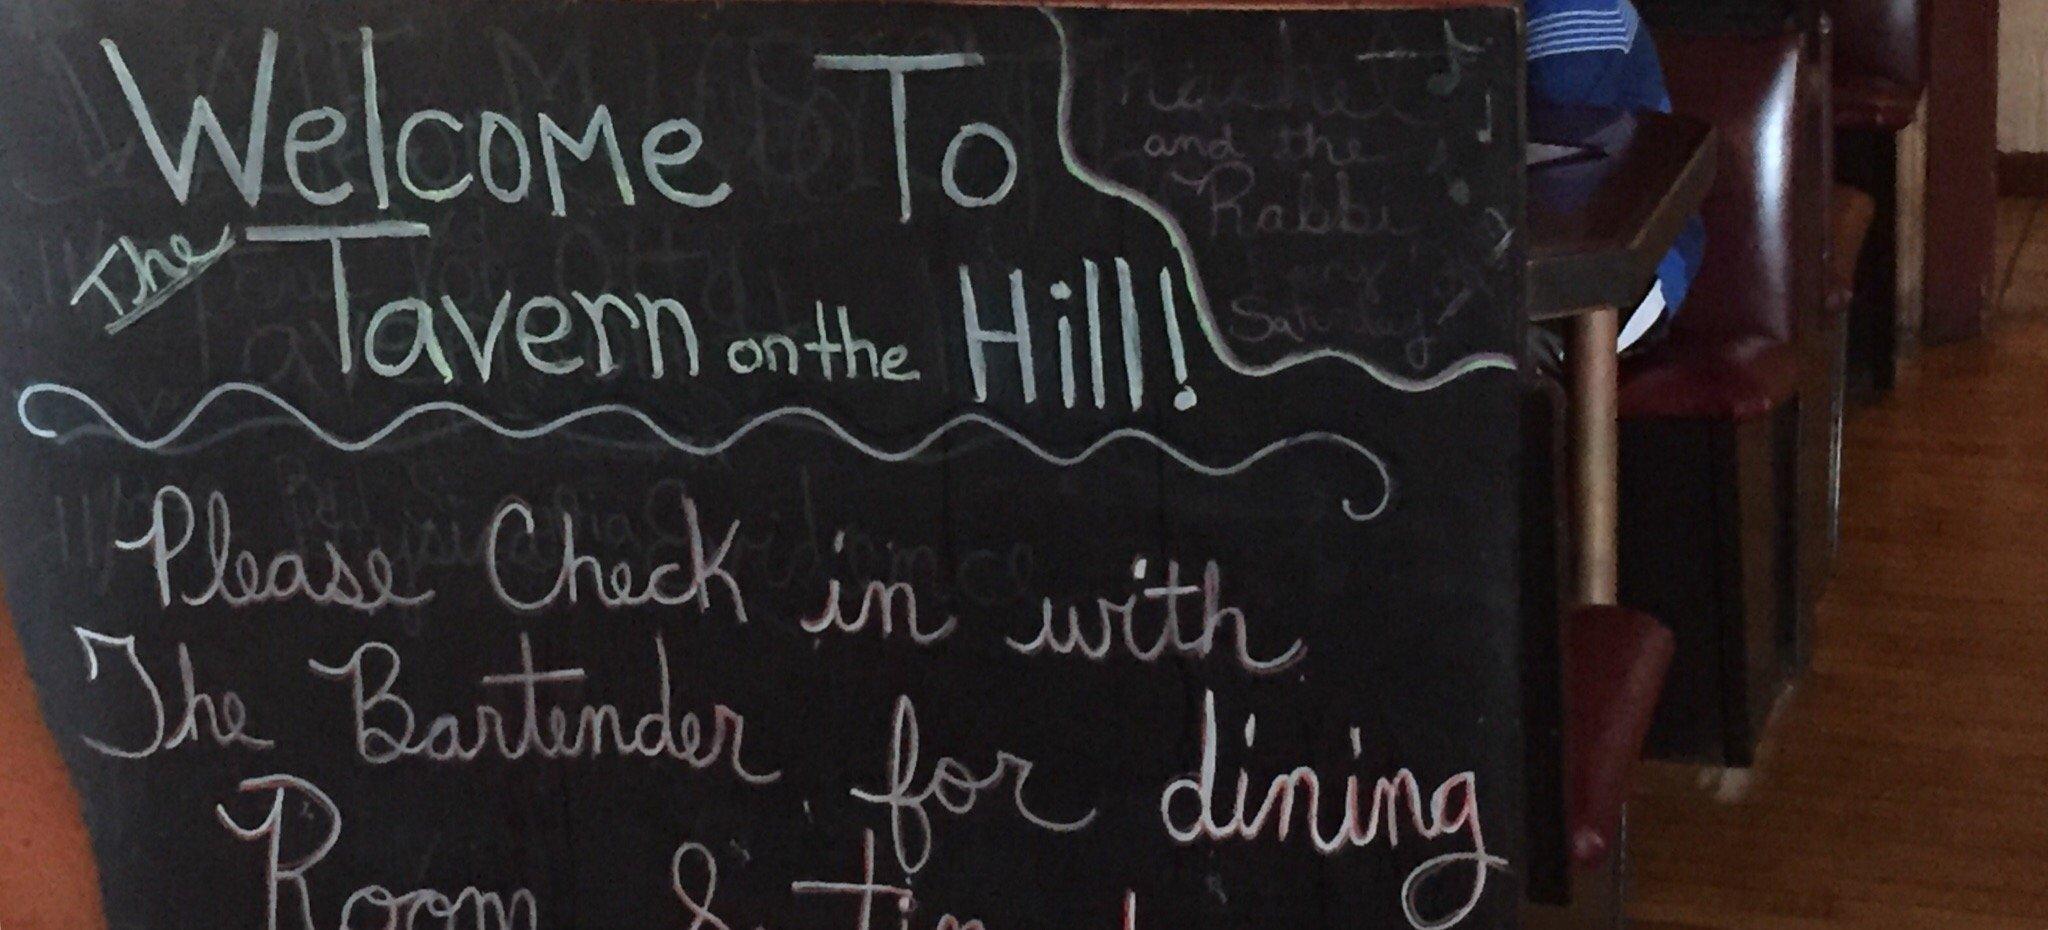 Welcome To
The Tavern on the Hill!
and the
Rabbi
Every
Saturday
Please Check in with
The Bartender for dining
Room